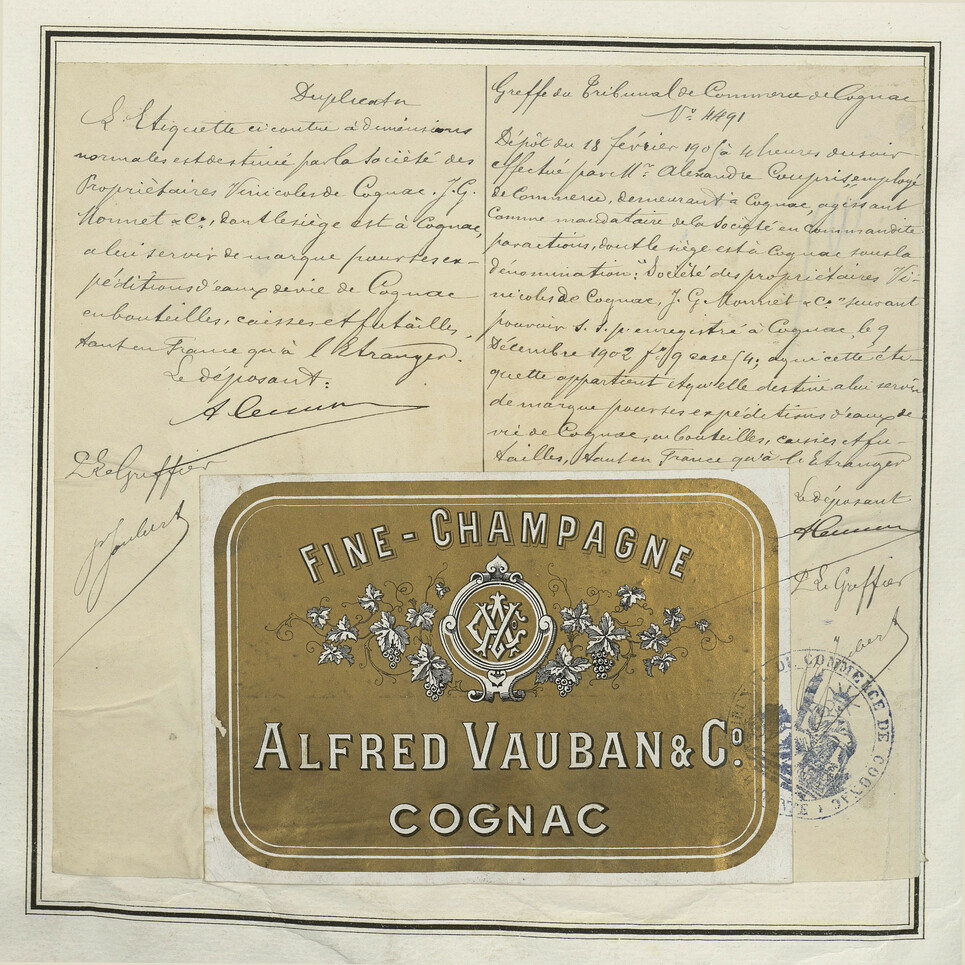 Duplicata
L'Etiquette ci contre à dimensions
normales est destinée par la Société des
Propriétaires Vinicoles de Cognac. J. G.
Monnet & Cie, dont le siège est à Cognac,
a lui servir de marque pour ses ex-
péditions d'eaux de vie de Cognac
en bouteilles, caisses et futailles,
tant en France qu'à l'Etranger.
Le déposant:
Le Greffier
Joubert
Greffe du Tribunal de Commerce de Cognac
N° 4491
Dépôt du 13 février 1905 à 4 heures du soir
effectué par Mr Alexandre employé
de Commerce, demeurant à Cognac, agissant
comme mandataire de la Société en commandite
par actions, dont le siège est à Cognac sous la
dénomination: "Société des propriétaires Vi-
nicoles de Cognac, J. G. Monnet & Cie" suivant
pouvoir s. s. p. enregistré à Cognac, le 9
Décembre 1902 fo 9 case 54; a qui cette éti-
quette appartient et qu'elle destine a lui servir
de marque pour ses expéditions d'eaux de
vie de Cognac, en bouteilles, caisses et fu-
tailles, tant en France qu'à l'Etranger
Le déposant
Le Greffier
FINE-CHAMPAGNE
ALFRED VAUBAN & Co.
COGNAC
DE COMMERCE DE COGNAC